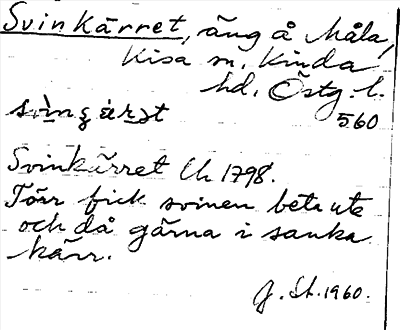 Svinkärret, äng å Måla,
Kisa sn, Kinda
hd, Östg. l.
560
Svinkärret Lh 1798.
Förr fick svinen beta ute
och då gärna i sanka
kärr.
J. St. 1960.